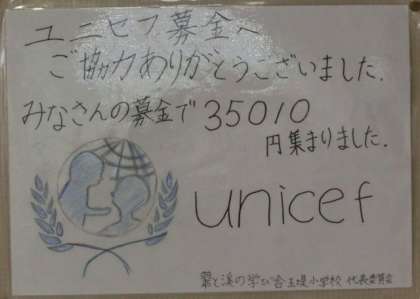 ユニセフ募金へ
ご協力ありがとうございました.
みなさんの募金で35010
円集まりました.
unicef
と渓の学び舎玉堤小学校 代表委員会